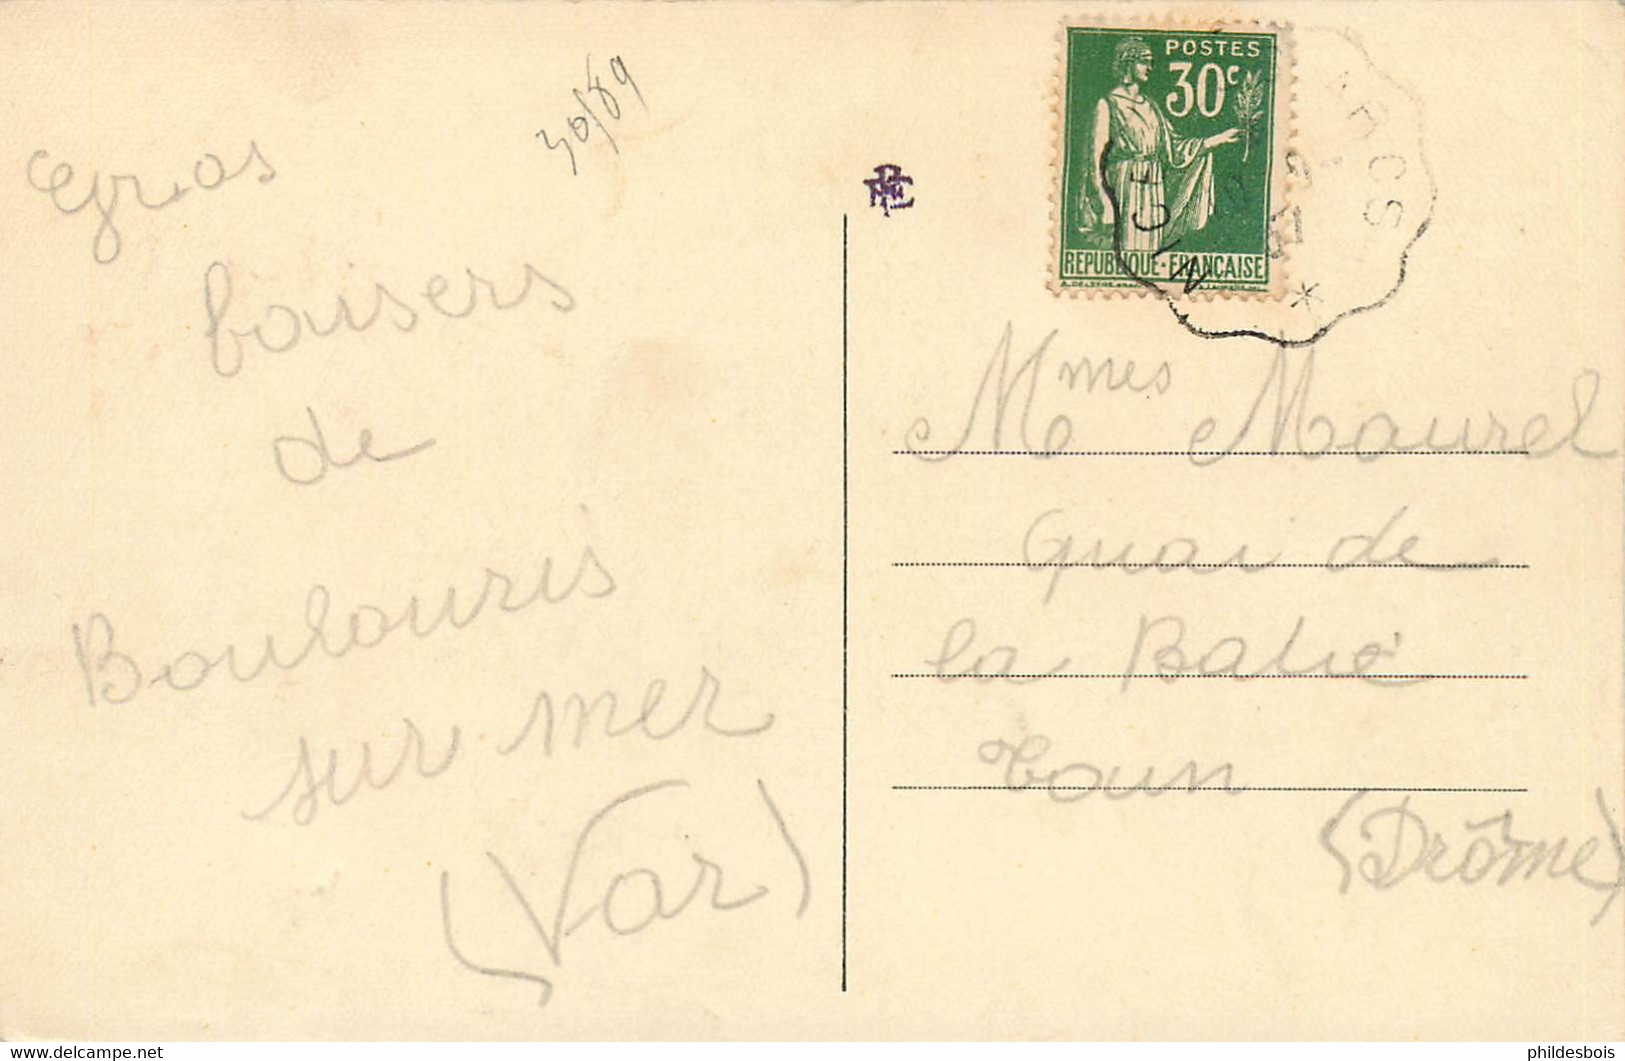 30/89
Gros
baisers
de
Boulouris
sur mer
(Var)
POSTES
30c
REPUBLIQUE · FRANÇAISE
NICE
ARCS
Mmes Maurel
Quai de
la
(Drôme)
delcampe.net
phildesbois